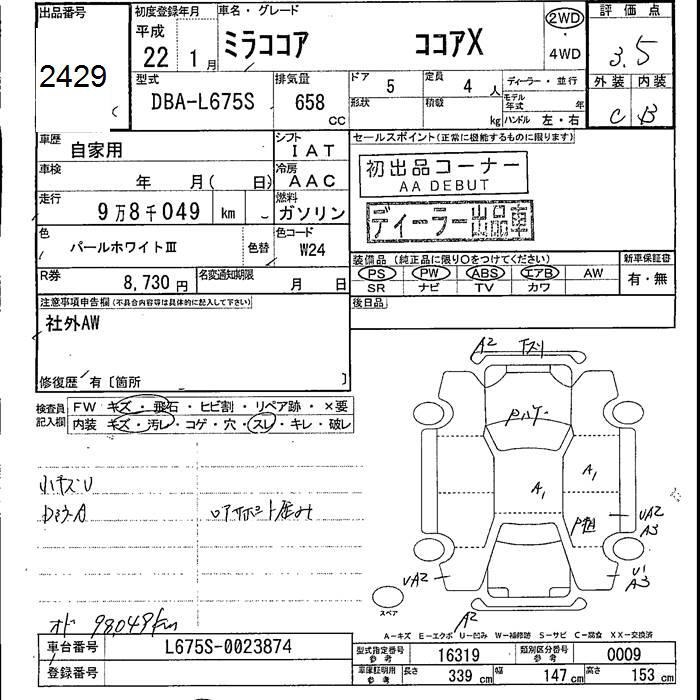 出品番号
2429
初度登録年月
平成
22 1月
車名・グレード
ミラココア ココアX
2WD
・
4WD
評価点
3.5
外装 内装
C B
型式
DBA-L675S
排気量
658
CC
ドア 5
形状
定員 4人
積載 kg
ディーラー・並行
モデル年式 年
ハンドル 左・右
車歴 自家用
シフト IAT
車検 年 月( 日)
冷房 AAC
走行 9万8千049 km
燃料 ガソリン
色 パールホワイトⅢ
色替
色コード W24
R券 8,730円
名変通知期限 月 日
セールスポイント(正常に機能するものに限ります)
初出品コーナー
AA DEBUT
ディーラー出品車
装備品(純正品に限り○をつけてください)
PS PW ABS エアB AW
SR ナビ TV カワ
新車保証書
有・無
後日品
注意事項申告欄(不具合内容等は具体的に記入して下さい)
社外AW
修復歴 有〔箇所 〕
検査員記入欄
FW キズ・飛石・ヒビ割・リペア跡・×要
内装 キズ・汚レ・コゲ・穴・スレ・キレ・破レ
小キズU
オド 98049km
A2 下スリ
A1
A1
UA2
A3
UA2
U1
A3
A2
スペア
A-キズ E-エクボ U-凹み W-補修跡 S-サビ C-腐食 XX-交換済
車台番号 L675S-0023874
登録番号
型式指定番号 参考 16319
類別区分番号 参考 0009
車庫証明用 参考 長さ 339 cm 幅 147 cm 高さ 153 cm